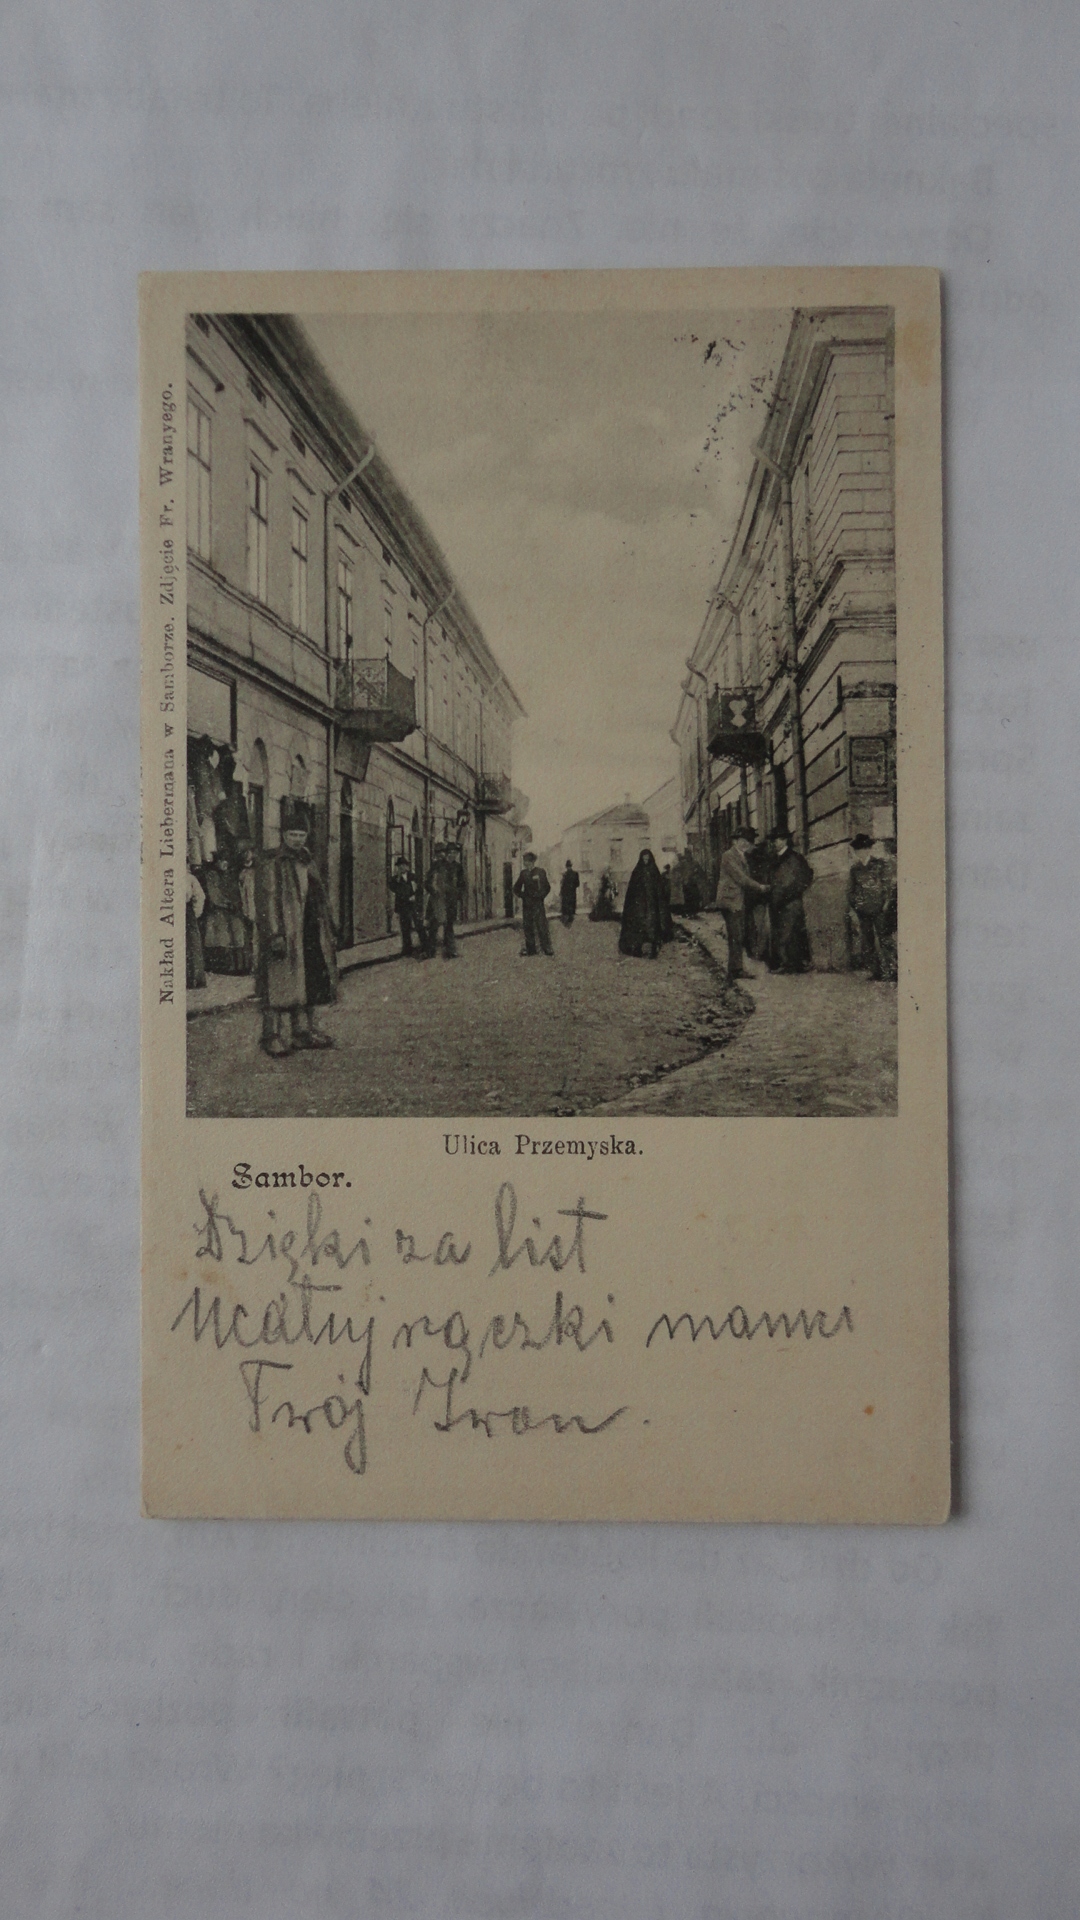 Nakład Altera Liebermana w Samborze. Zdjęcie Fr. Wranyego.
Ulica Przemyska.
Sambor.
Dzięki za list
Ucałuj rączki mamci
Twój Iwon.